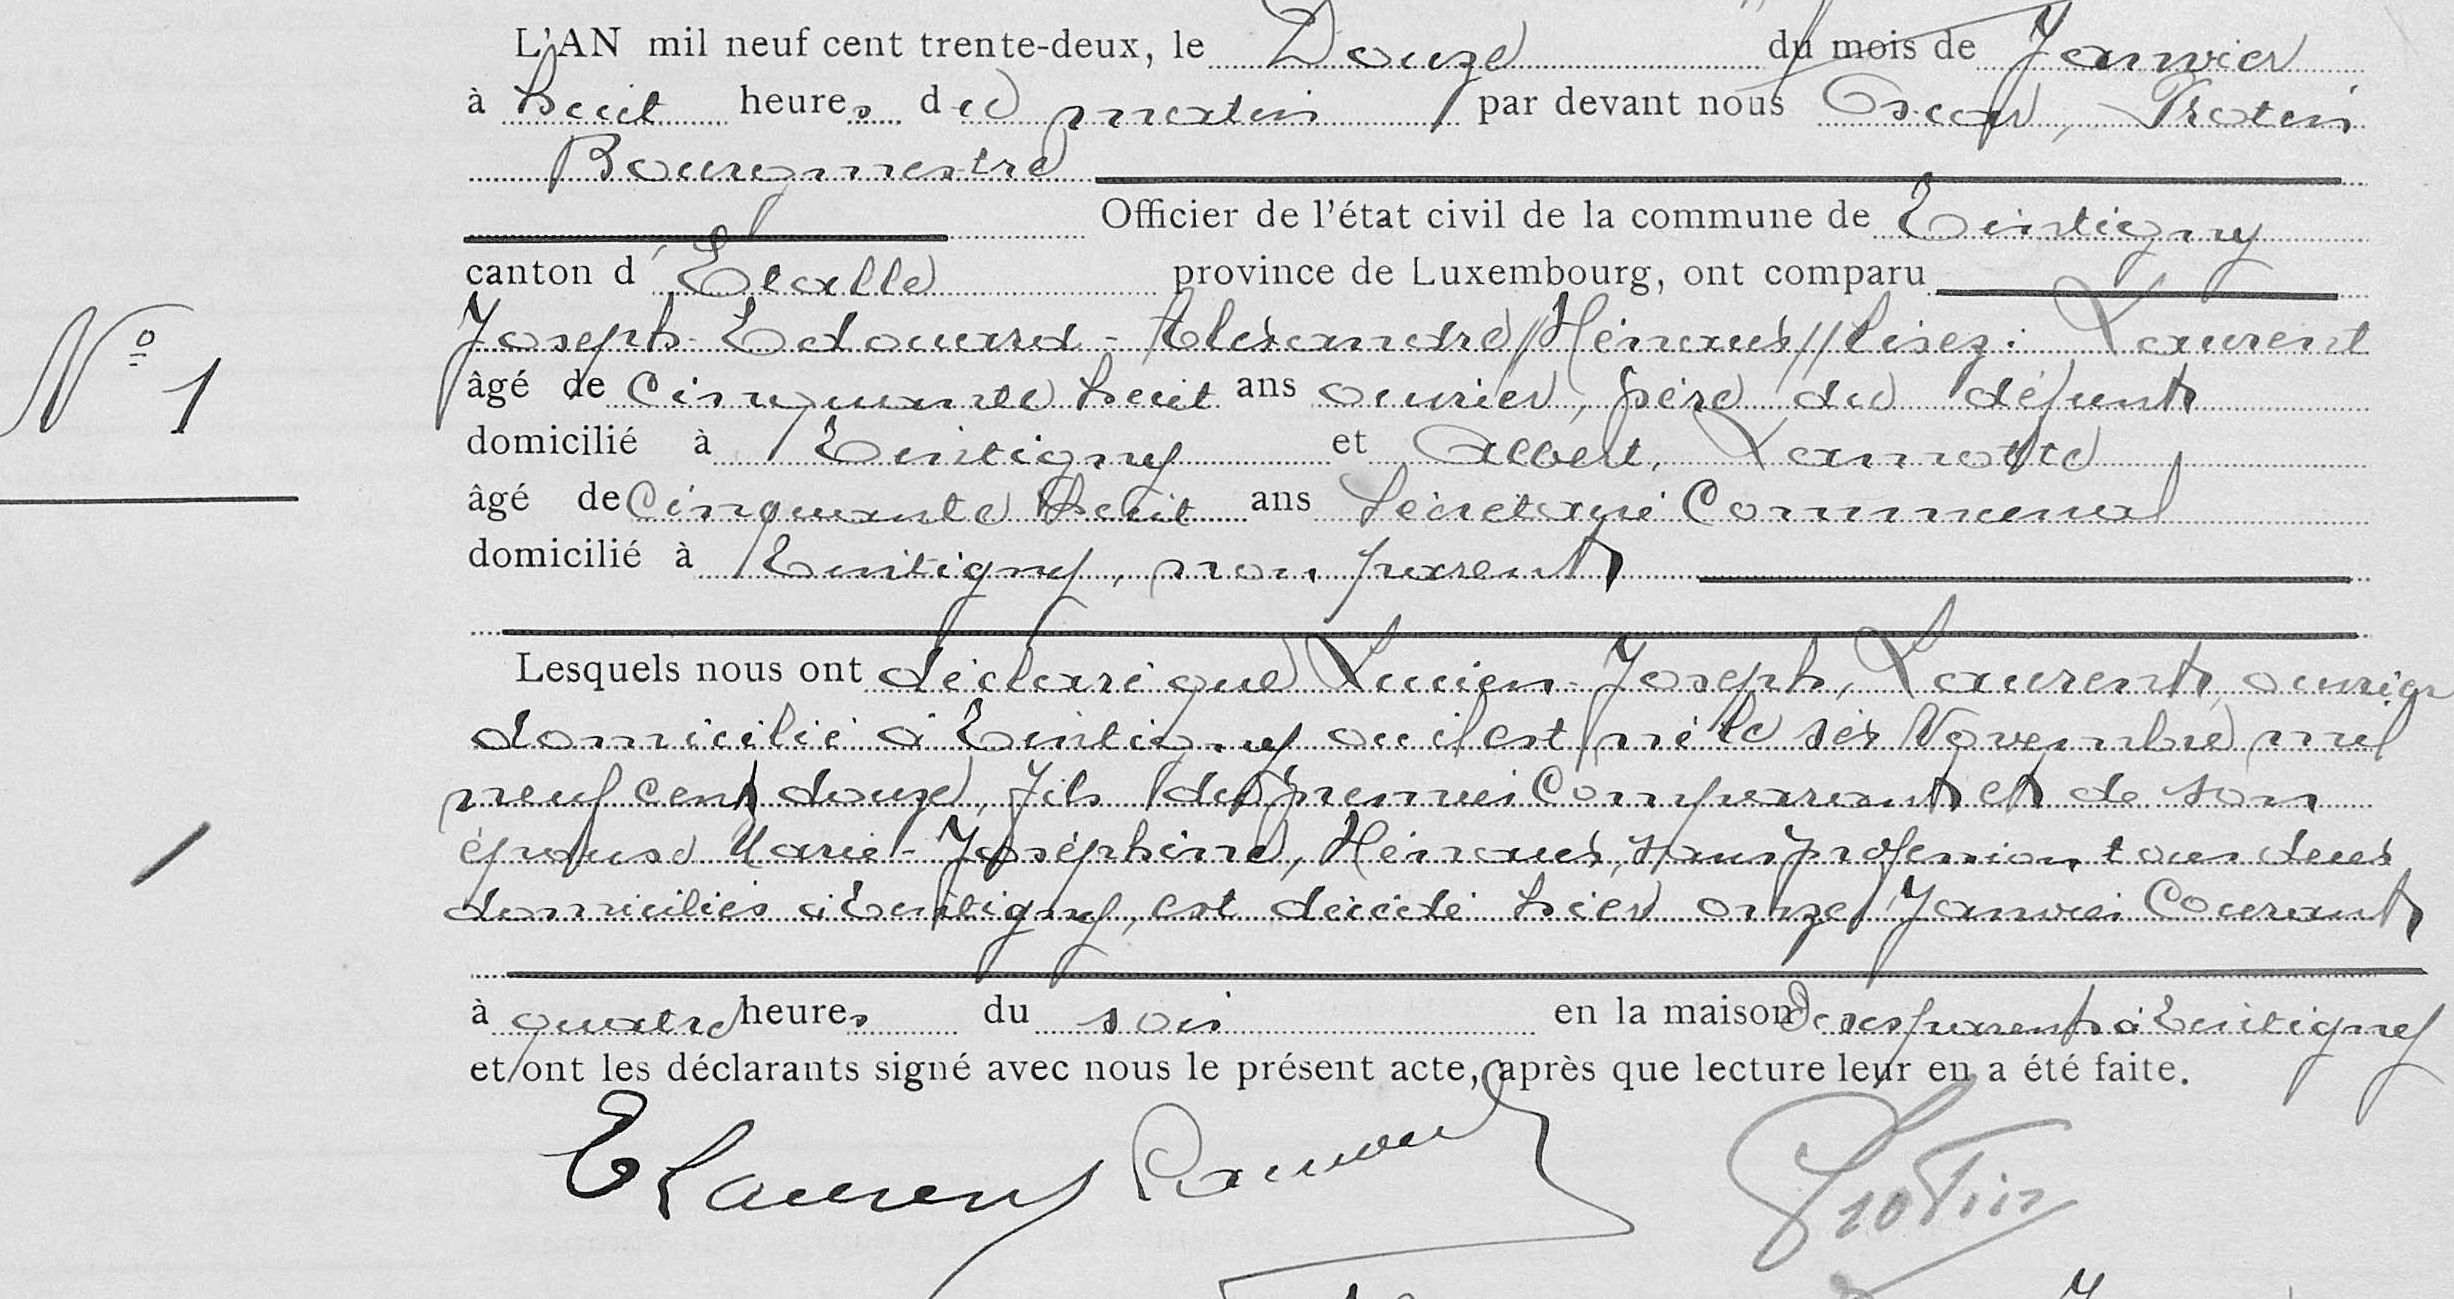 L'AN mil neuf cent trente-deux, le Douze du mois de Janvier
à huit heures du matin par devant nous Oscar, Protin
Bourgmestre
Officier de l'état civil de la commune de Tintigny
canton d'Etalle province de Luxembourg, ont comparu
Joseph-Edouard-Alexandre//Hénaux//lisez: Laurent
N° 1
âgé de Cinquante huit ans ouvrier, père du défunt
domicilié à Tintigny et Albert, Lamotte
âgé de Cinquante huit ans Secrétaire Communal
domicilié à Tintigny, non parent
Lesquels nous ont déclaré que Lucien-Joseph, Laurent, ouvrier
domicilié à Tintigny où il est né le six Novembre mil
neuf cent douze, fils du premier Comparant et de son
épouse Marie-Joséphine, Hénaux, sans profession, tous deux
domiciliés à Tintigny, est décédé hier onze Janvier Courant
à quatre heures du soir en la maison de ses parents à Tintigny
et ont les déclarants signé avec nous le présent acte, après que lecture leur en a été faite.
E Laurent Protin